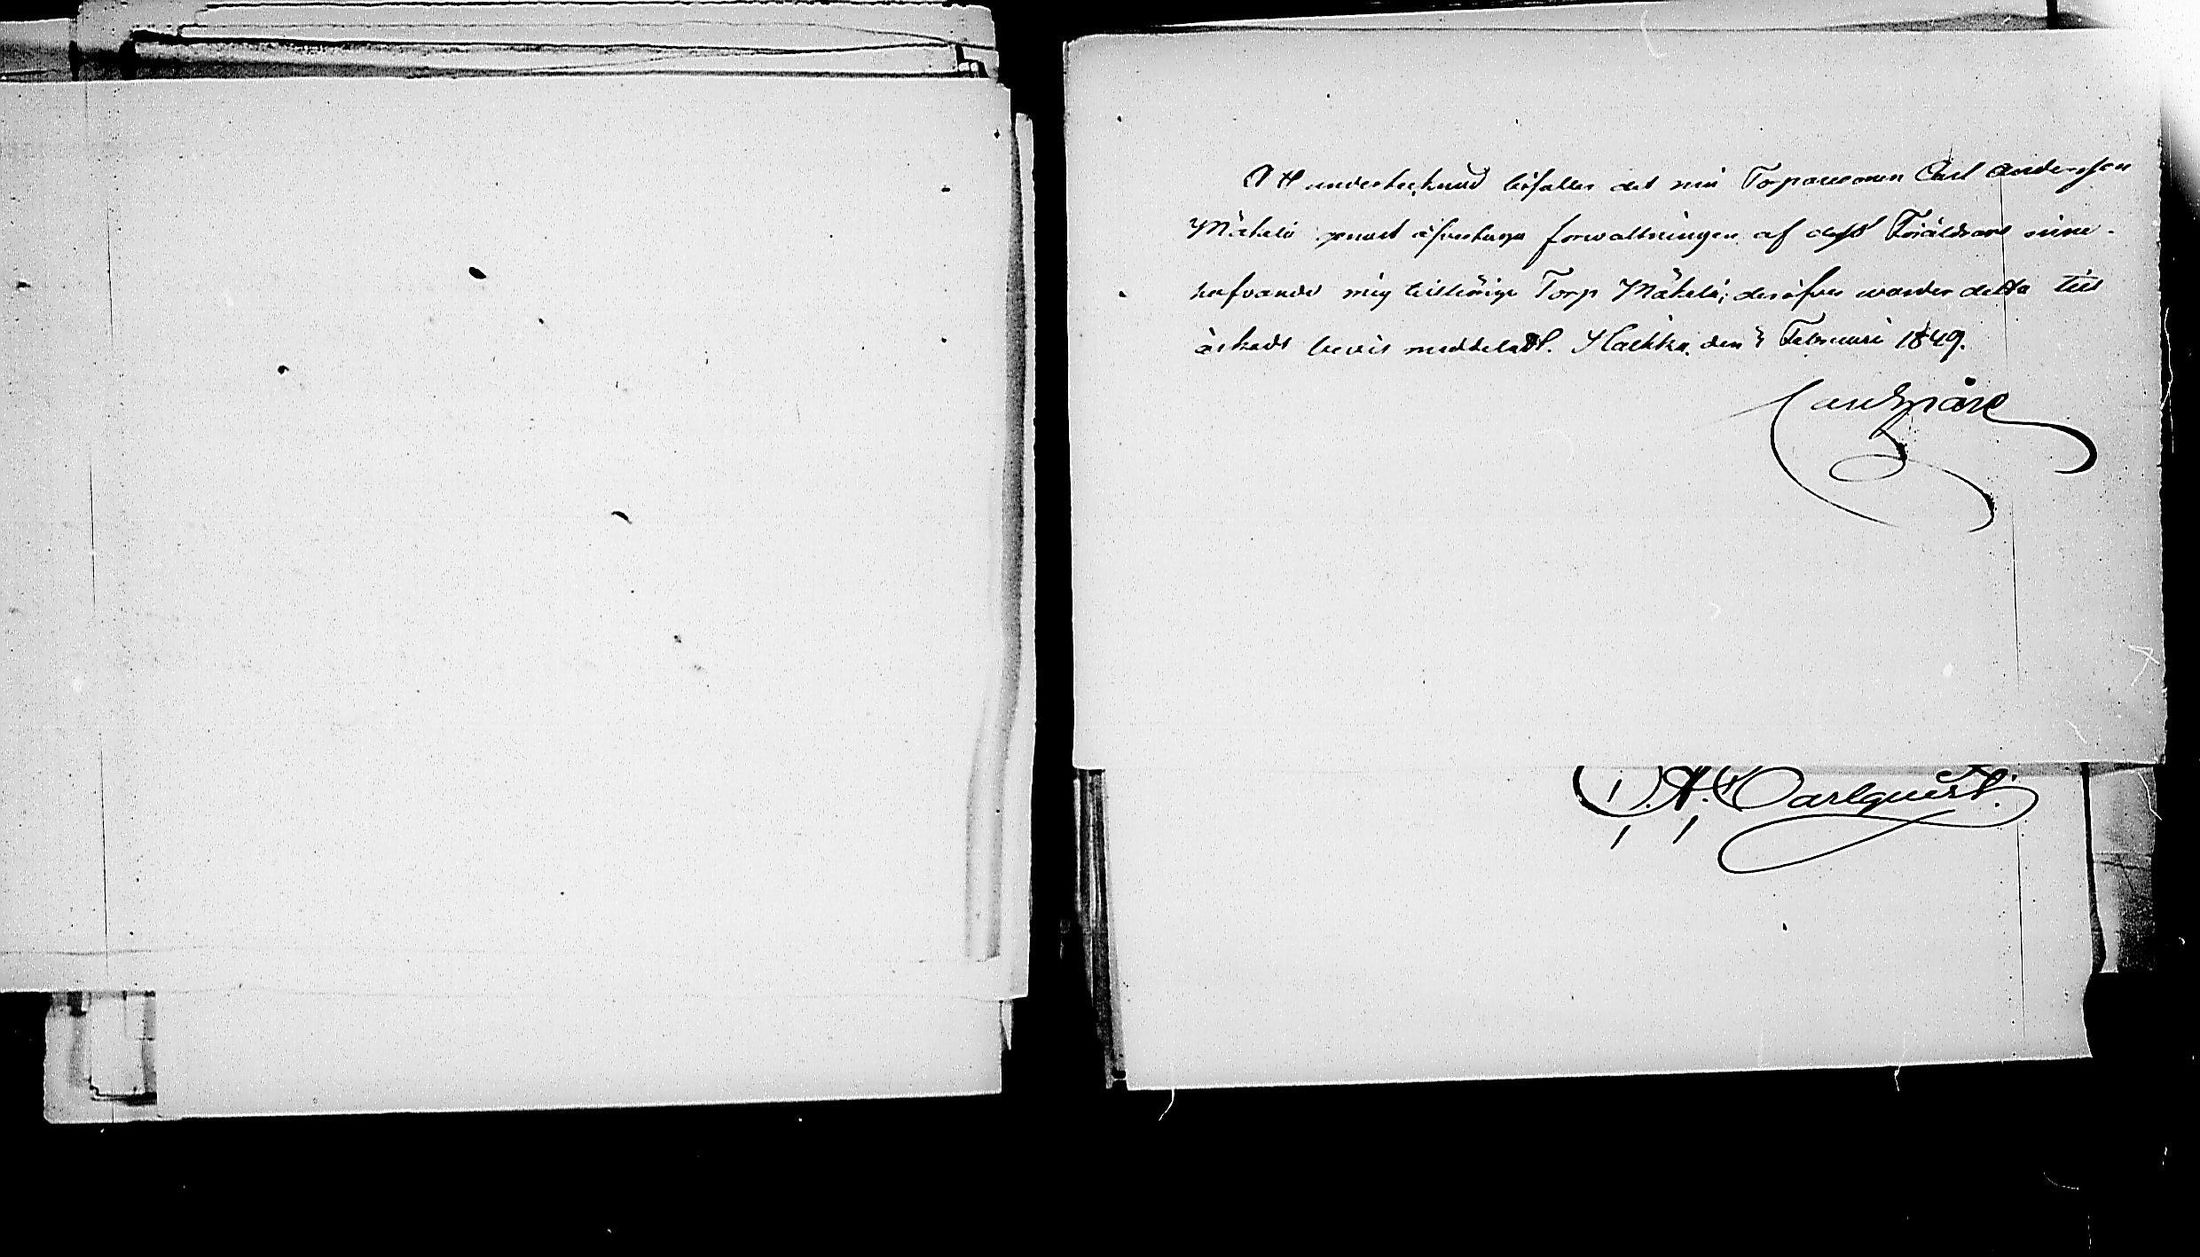 Att undertecknad bifaller det min Torparesonen Carl Andersson
Mäkelä genast öfvertaga förwaltningen af dess Föräldrars inne-
hafvande mig tillhörige Torp Mäkelä; deröfver warder detta till
äskadt bevis meddeladt. Kackko den Februari 1849.
Carl Spåre
A. Carlquist.